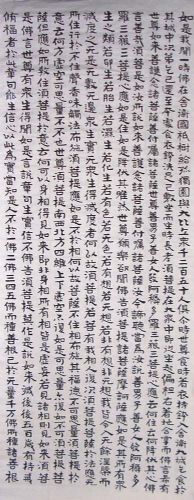 如是我聞一時佛在舍衛國祇樹給孤獨園與大比丘眾千二百五十人俱爾時世尊食時著衣持鉢入舍衛大城乞食於
其城中次第乞已還至本處飯食訖收衣鉢洗足已敷座而坐時長老須菩提在大眾中即從座起偏袒右肩右膝著地合掌恭敬而白佛言希有
世尊如來善護念諸菩薩善付囑諸菩薩世尊善男子善女人發阿耨多羅三藐三菩提心應云何住云何降伏其心佛
言善哉善哉須菩提如汝所說如來善護念諸菩薩善付囑諸菩薩汝今諦聽當為汝說善男子善女人發阿耨多
羅三藐三菩提心應如是住如是降伏其心唯然世尊願樂欲聞佛告須菩提諸菩薩摩訶薩應如是降伏其心所有一切眾
生之類若卵生若胎生若濕生若化生若有色若无色若有想若无想若非有想非无想我皆令入无餘涅槃而
滅度之如是滅度无量无數无邊眾生實无眾生得滅度者何以故須菩提若菩薩有我相人相眾生相壽者相即非菩薩復次須菩提菩薩於法應无
所住行於布施所謂不住色布施不住聲香味觸法布施須菩提菩薩應如是布施不住於相何以故若菩薩不住相布施其福德不可思量須菩提於
意云何東方虛空可思量不不也世尊須菩提南西北方四維上下虛空可思量不不也世尊須菩提菩薩无住相布施福德亦復如是不可思量須菩提菩
薩但應如所教住須菩提於意云何可以身相見如來不
凡所有相皆是虛妄若見諸相非相則見如來須菩提
白佛言世尊頗有眾生得聞如是言說章句生實信不佛告須菩提莫作是說如來滅後後五百歲有持戒
修福者於此章句能生信心以此為實當知是人不於一佛二佛三四五佛而種善根已於无量千萬佛所種諸善根